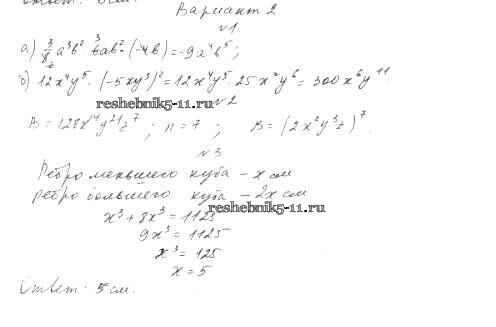 Вариант 2
№1
а) 3/8 a³b² 6ab² · (-4b) = -9a⁴b⁵;
б) 12x⁴y⁵ · (-5xy³)² = 12x⁴y⁵ · 25x²y⁶ = 300x⁶y¹¹
reshebnik5-11.ru
№2
B = 128x¹⁴y²¹z⁷; n = 7; B = (2x²y³z)⁷.
№3
Ребро меньшего куба – x см
ребро большего куба – 2x см
reshebnik5-11.ru
x³ + 8x³ = 1125
9x³ = 1125
x³ = 125
x = 5
Ответ: 5 см.